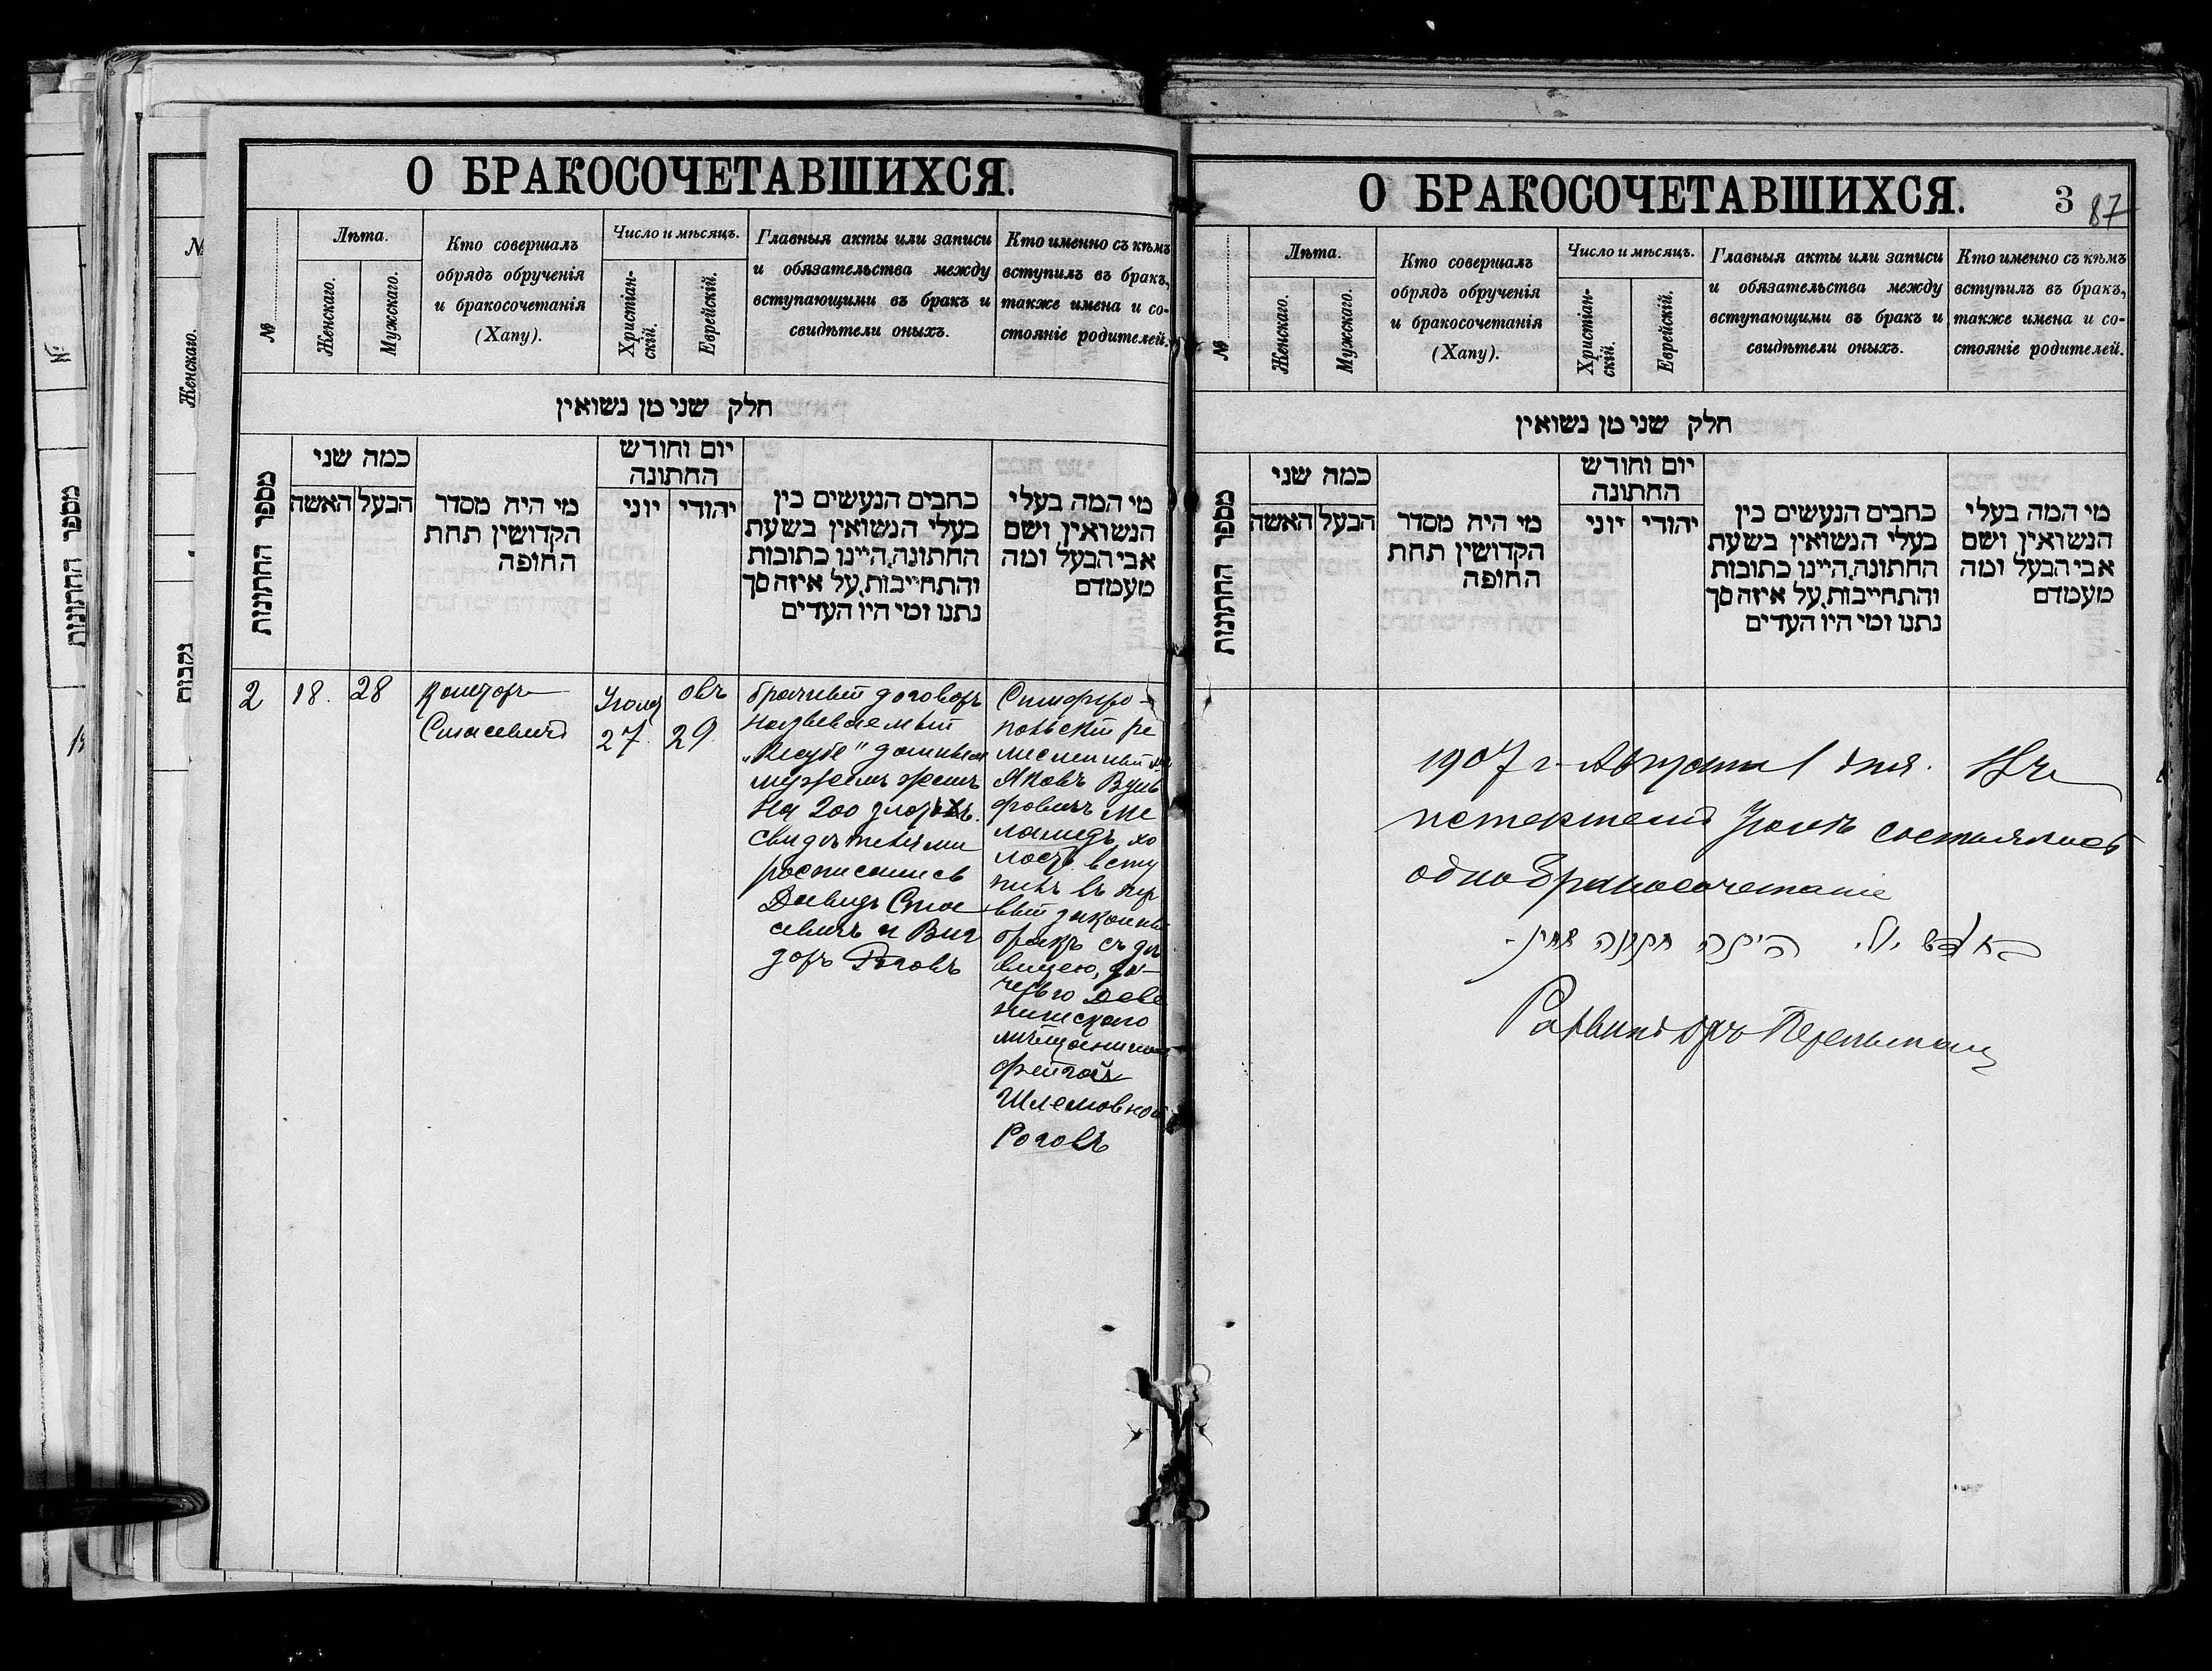 О БРАКОСОЧЕТАВШИХСЯ.
№
Лѣта.
Женскаго.
Мужскаго.
Кто совершалъ
обрядъ обрученія
и бракосочетанія
(Хапу).
Число и мѣсяцъ.
Христіан-
скій.
Еврейскій.
Главныя акты или записи
и обязательства между
вступающими въ бракъ и
свидѣтели оныхъ.
Кто именно съ кѣмъ
вступилъ въ бракъ,
также имена и со-
стояніе родителей.
חלק שני מן נשואין
מספר החתונות
כמה שני
האשה
הבעל
מי היה מסדר
הקדושין תחת
החופה
יום וחודש
החתונה
יוני
יהודי
כתבים הנעשים בין
בעלי הנשואין בשעת
החתונה, היינו כתובות
והתחייבות, על איזה סך
נתנו ומי היו העדים
מי המה בעלי
הנשואין ושם
אבי הבעל ומה
מעמדם
2
18.
28
Іюля
27.
овъ
29
брачный договоръ
называемый
мужемъ женѣ
на 200 злотыхъ.
свидѣтелями
росписались
Давидъ Спие
севичъ и Виг
доръ Роговъ
Симферо-
польскій ре
месленный
Яковъ Вуль
фовичъ Ме
ламедъ, хо
лостъ всту
пилъ въ пер
вый законный
бракъ съ дѣ
вицею, до-
черью
мѣщанина
Фейгой
Шлемовной
Роговъ
О БРАКОСОЧЕТАВШИХСЯ.
3
87
№
Лѣта.
Женскаго.
Мужскаго.
Кто совершалъ
обрядъ обрученія
и бракосочетанія
(Хапу).
Число и мѣсяцъ.
Христіан-
скій.
Еврейскій.
Главныя акты или записи
и обязательства между
вступающими въ бракъ и
свидѣтели оныхъ.
Кто именно съ кѣмъ
вступилъ въ бракъ,
также имена и со-
стояніе родителей.
חלק שני מן נשואין
מספר החתונות
כמה שני
האשה
הבעל
מי היה מסדר
הקדושין תחת
החופה
יום וחודש
החתונה
יוני
יהודי
כתבים הנעשים בין
בעלי הנשואין בשעת
החתונה, היינו כתובות
והתחייבות, על איזה סך
נתנו ומי היו העדים
מי המה בעלי
הנשואין ושם
אבי הבעל ומה
מעמדם
1907 г. Августа 1 дня. Въ
истекшемъ Іюлѣ состоялось
одно бракосочетаніе
Раввинъ